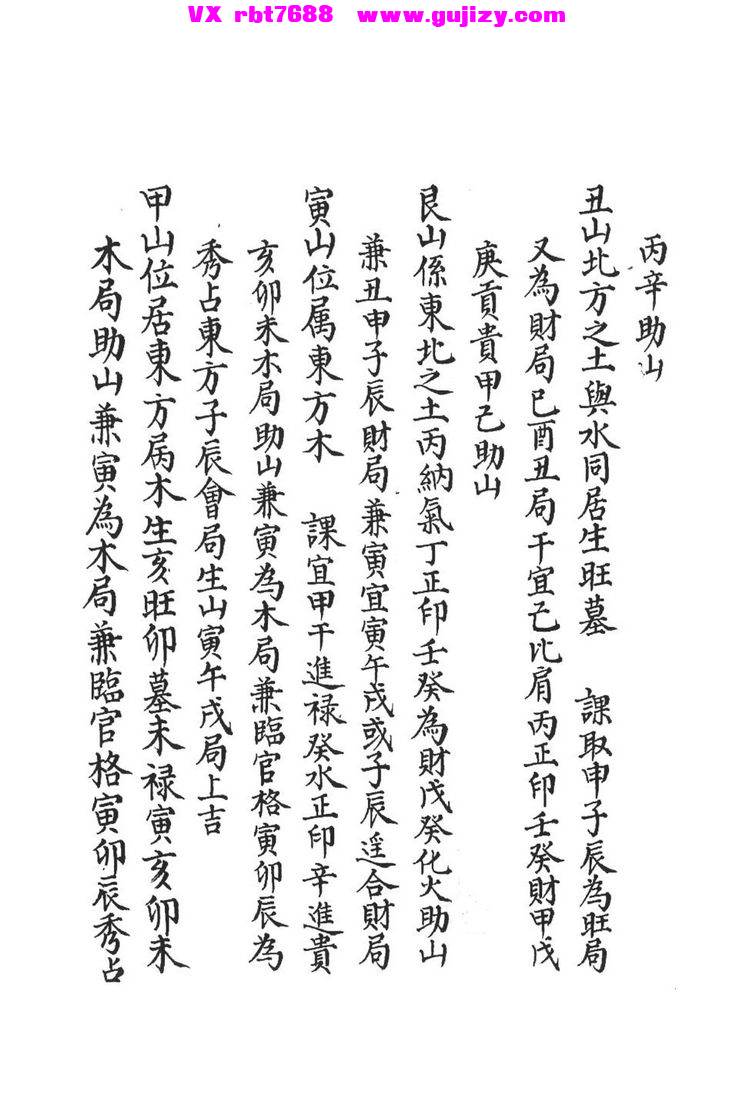 VX rbt7688 www.gujizy.com
丙辛助山
丑山北方之土與水同居生旺墓 課取申子辰為旺局
又為財局巳酉丑局干宜己比肩丙正印壬癸財甲戊
庚貢貴甲己助山
艮山係東北之土丙納氣丁正印壬癸為財戊癸化火助山
兼丑申子辰財局兼寅宜寅午戌或子辰遥合財局
寅山位属東方木 課宜甲干進禄癸水正印辛進貴
亥卯未木局助山兼寅為木局兼臨官格寅卯辰為
秀占東方子辰會局生山寅午戌局上吉
甲山位居東方属木生亥旺卯墓未禄寅亥卯未
木局助山兼寅為木局兼臨官格寅卯辰秀占